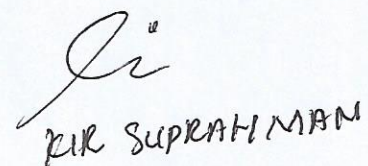 KIR SUPRAHMAN